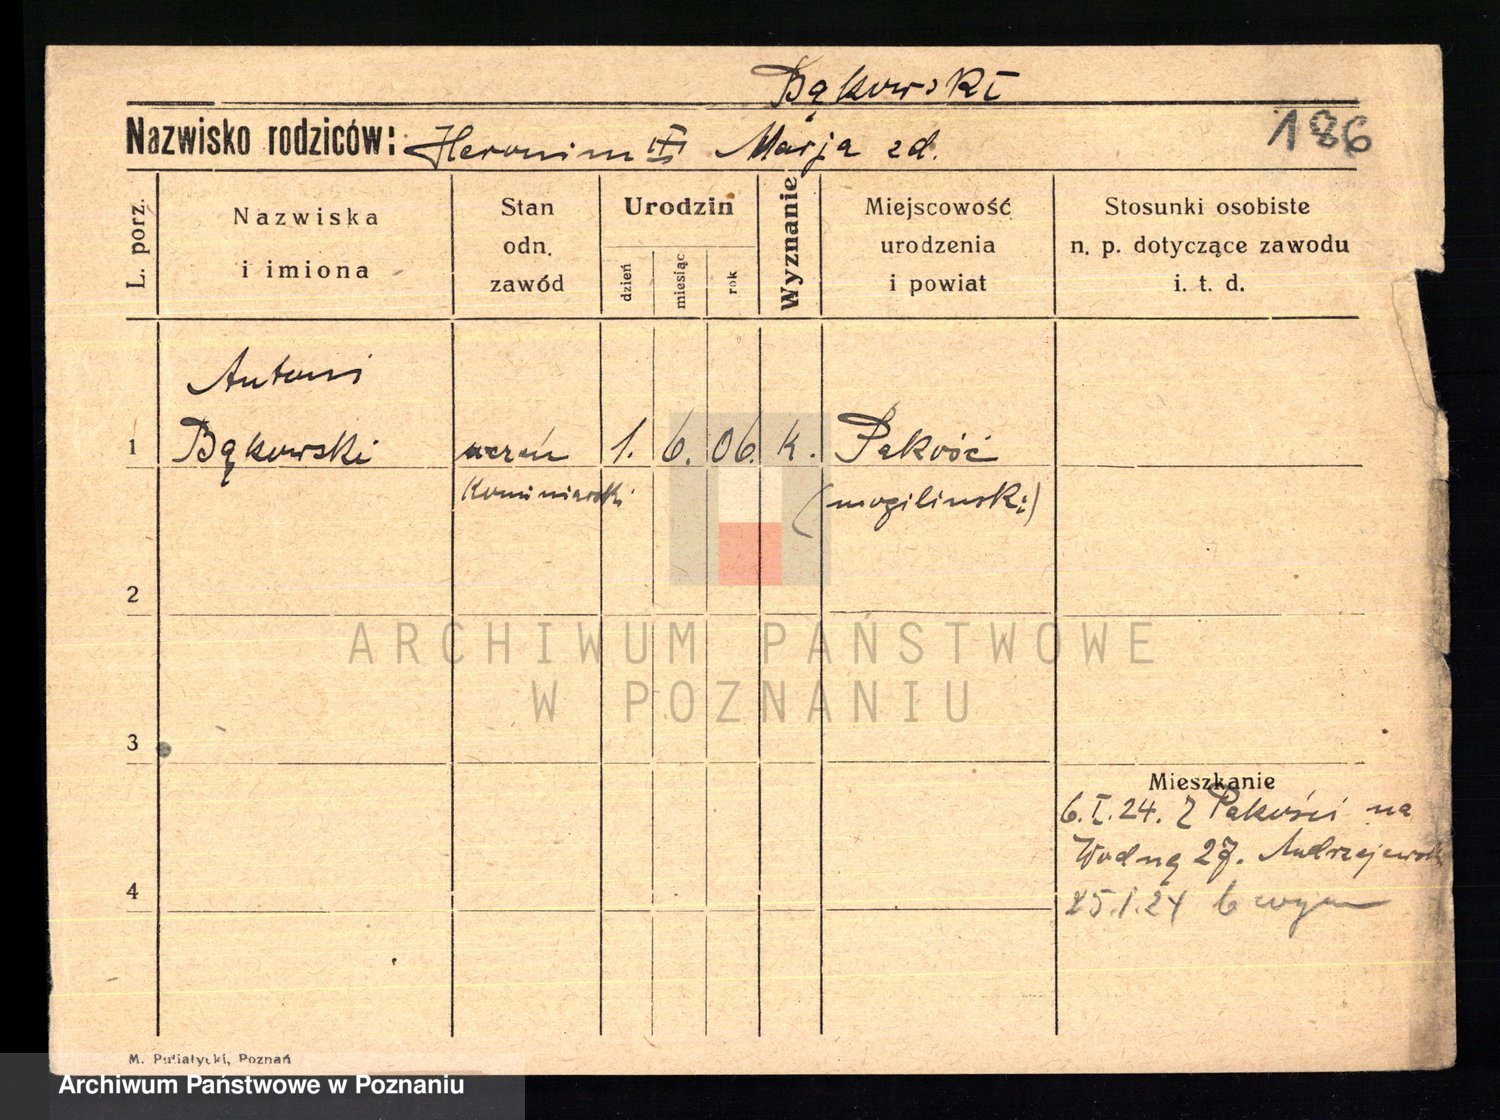 Bąkowski
186
Nazwisko rodziców: Heronim Marja zd.
L. porz.
Nazwiska
i imiona
Stan
odn.
zawód
Urodzin
dzień
miesiąc
rok
Wyznanie
Miejscowość
urodzenia
i powiat
Stosunki osobiste
n. p. dotyczące zawodu
i. t. d.
Antoni
1 Bąkowski uczeń 1. 6. 06. k. Pakość
kominiarski (mogilinski)
2
ARCHIWUM PAŃSTWOWE
W POZNANIU
3
Mieszkanie
6.I.24. Z Pakości na
Wodną 27. Andrzejewski
4
25.I.24
M. Putiatycki, Poznań
Archiwum Państwowe w Poznaniu